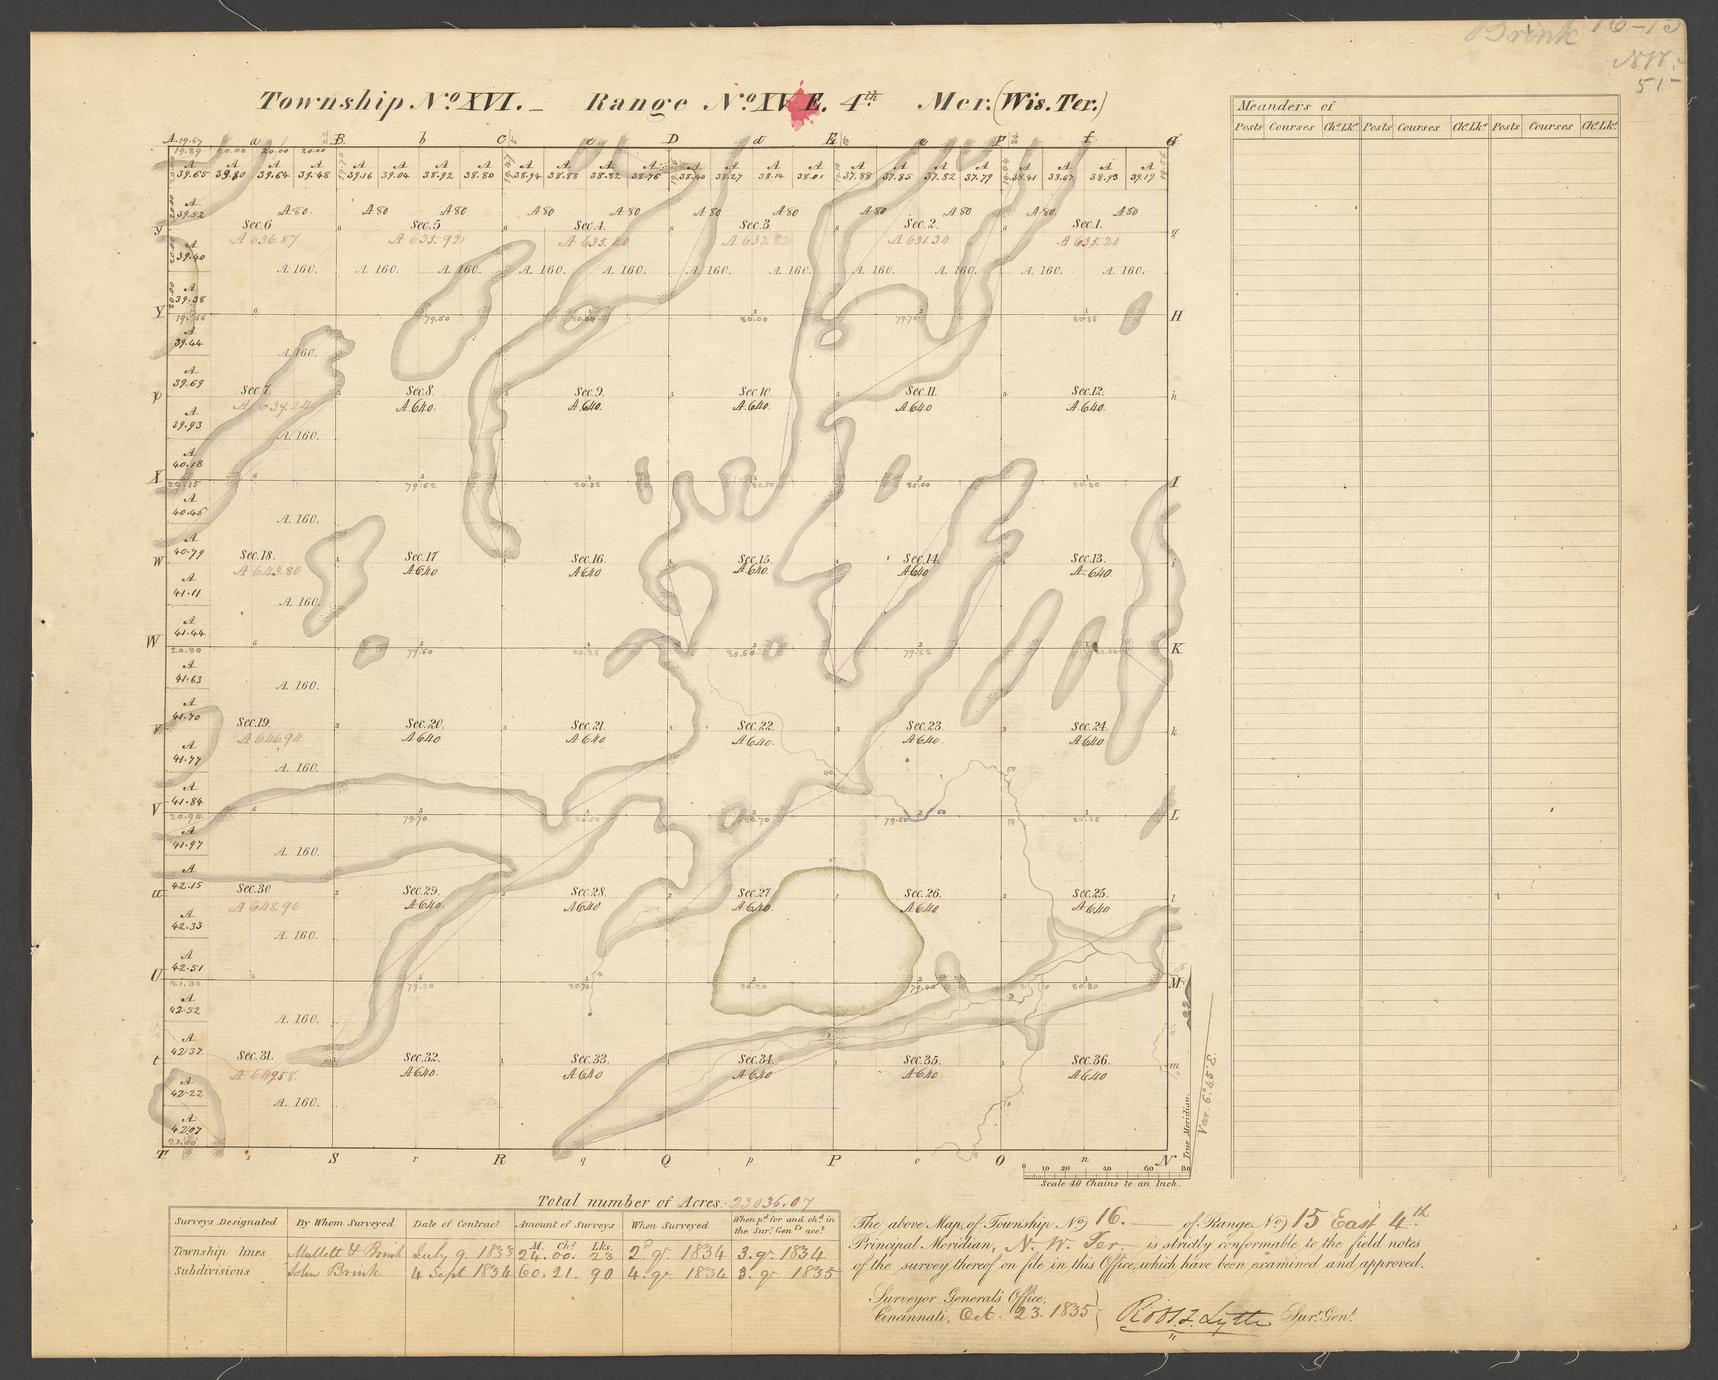 Brink 16-15
N.W.
51
Township No. XVI. _ Range No. XV E. 4th Mer. (Wis. Ter.)
Meanders of
Posts Courses Chs. Lks. Posts Courses Chs. Lks. Posts Courses Chs. Lks.
A 19.67 a B b C c D d E e F f G
19.89 20.00 20.00 20.00
A A A A A A A A A A A A A A A A A A A A A A A A
39.65 39.80 39.64 39.48 39.16 39.04 38.92 38.80 38.94 38.88 38.82 38.76 38.40 38.27 38.14 38.01 37.88 37.85 37.82 37.79 38.41 38.67 38.93 39.19
A
39.52
A 80. A 80 A 80 A 80 A 80 A 80 A 80 A 80 A 80 A 80. A 80
y Sec. 6 Sec. 5 Sec. 4. Sec. 3. Sec. 2. Sec. 1. g
A 636.87 A 635.92 A 635.40 A 632.82 A 631.34 A 635.20
A
39.40
A. 160. A. 160. A. 160. A. 160. A. 160. A. 160. A. 160. A. 160. A. 160. A. 160. A. 160.
A
39.38
Y 79.60 80.00 79.70 80.35 H
A
39.44
A. 160.
A
39.69
p Sec. 7. Sec. 8 Sec. 9. Sec. 10. Sec. 11. Sec. 12. h
A 639.24 A 640. A 640. A 640. A 640 A 640.
A
39.93
A. 160.
A
40.18
X 20.15 79.62 80.35 80.60 80.30 I
A
40.45
A. 160.
A
40.79
w Sec. 18. Sec. 17 Sec. 16 Sec. 15. Sec. 14. Sec. 13. i
A 643.80 A 640 A 640 A 640. A 640 A 640.
A
41.11
A. 160.
A
41.44
W 20.80 79.60 80.25 80.60 79.62 K
A
41.63
A. 160.
A
41.70
v Sec. 19. Sec. 20. Sec. 21. Sec. 22. Sec. 23. Sec. 24. k
A 646.94 A 640 A 640 A 640. A 640. A 640
A
41.77
A. 160.
A
41.84
V 20.94 79.70 80.70 79.60 80.35 L
A
41.97
A. 160.
A
42.15
u Sec. 30 Sec. 29. Sec. 28. Sec. 27 Sec. 26. Sec. 25. l
A 648.96 A 640. A 640 A 640. A 640 A 640
A
42.33
A. 160.
A
42.51
U 21.30 79.30 80.20 79.40 80.80 M
A
42.52
A. 160.
A
42.37
t Sec. 31. Sec. 32. Sec. 33. Sec. 34. Sec. 35. Sec. 36. m
A 649.58 A 640. A 640 A 640 A 640 A 640
A
42.22
A. 160.
A
42.07
21.00
T s S r R q Q p P o O n N
True Meridian.
Var. 6° 45' E.
0 10 20 40 60 80
Scale 40 Chains to an Inch.
Total number of Acres: 23036.07
Surveys Designated By Whom Surveyed Date of Contract Amount of Surveys When Surveyed When pd. for and chd. in the Sur. Genls. acct.
M. Chs. Lks.
Township lines Mullett & Brink July 9. 1833 24. 00. 23 2d qr. 1834 3. qr. 1834
Subdivisions John Brink 4 Sept. 1834 60. 21. 90 4. qr. 1834 3. qr. 1835
The above Map, of Township No. 16. of Range No. 15 East 4th
Principal Meridian, N. W. Ter. is strictly conformable to the field notes
of the survey thereof on file in this Office, which have been examined and approved.
Surveyor General's Office,
Cincinnati, Oct. 23. 1835 Robt. T. Lytle Sur. Genl.